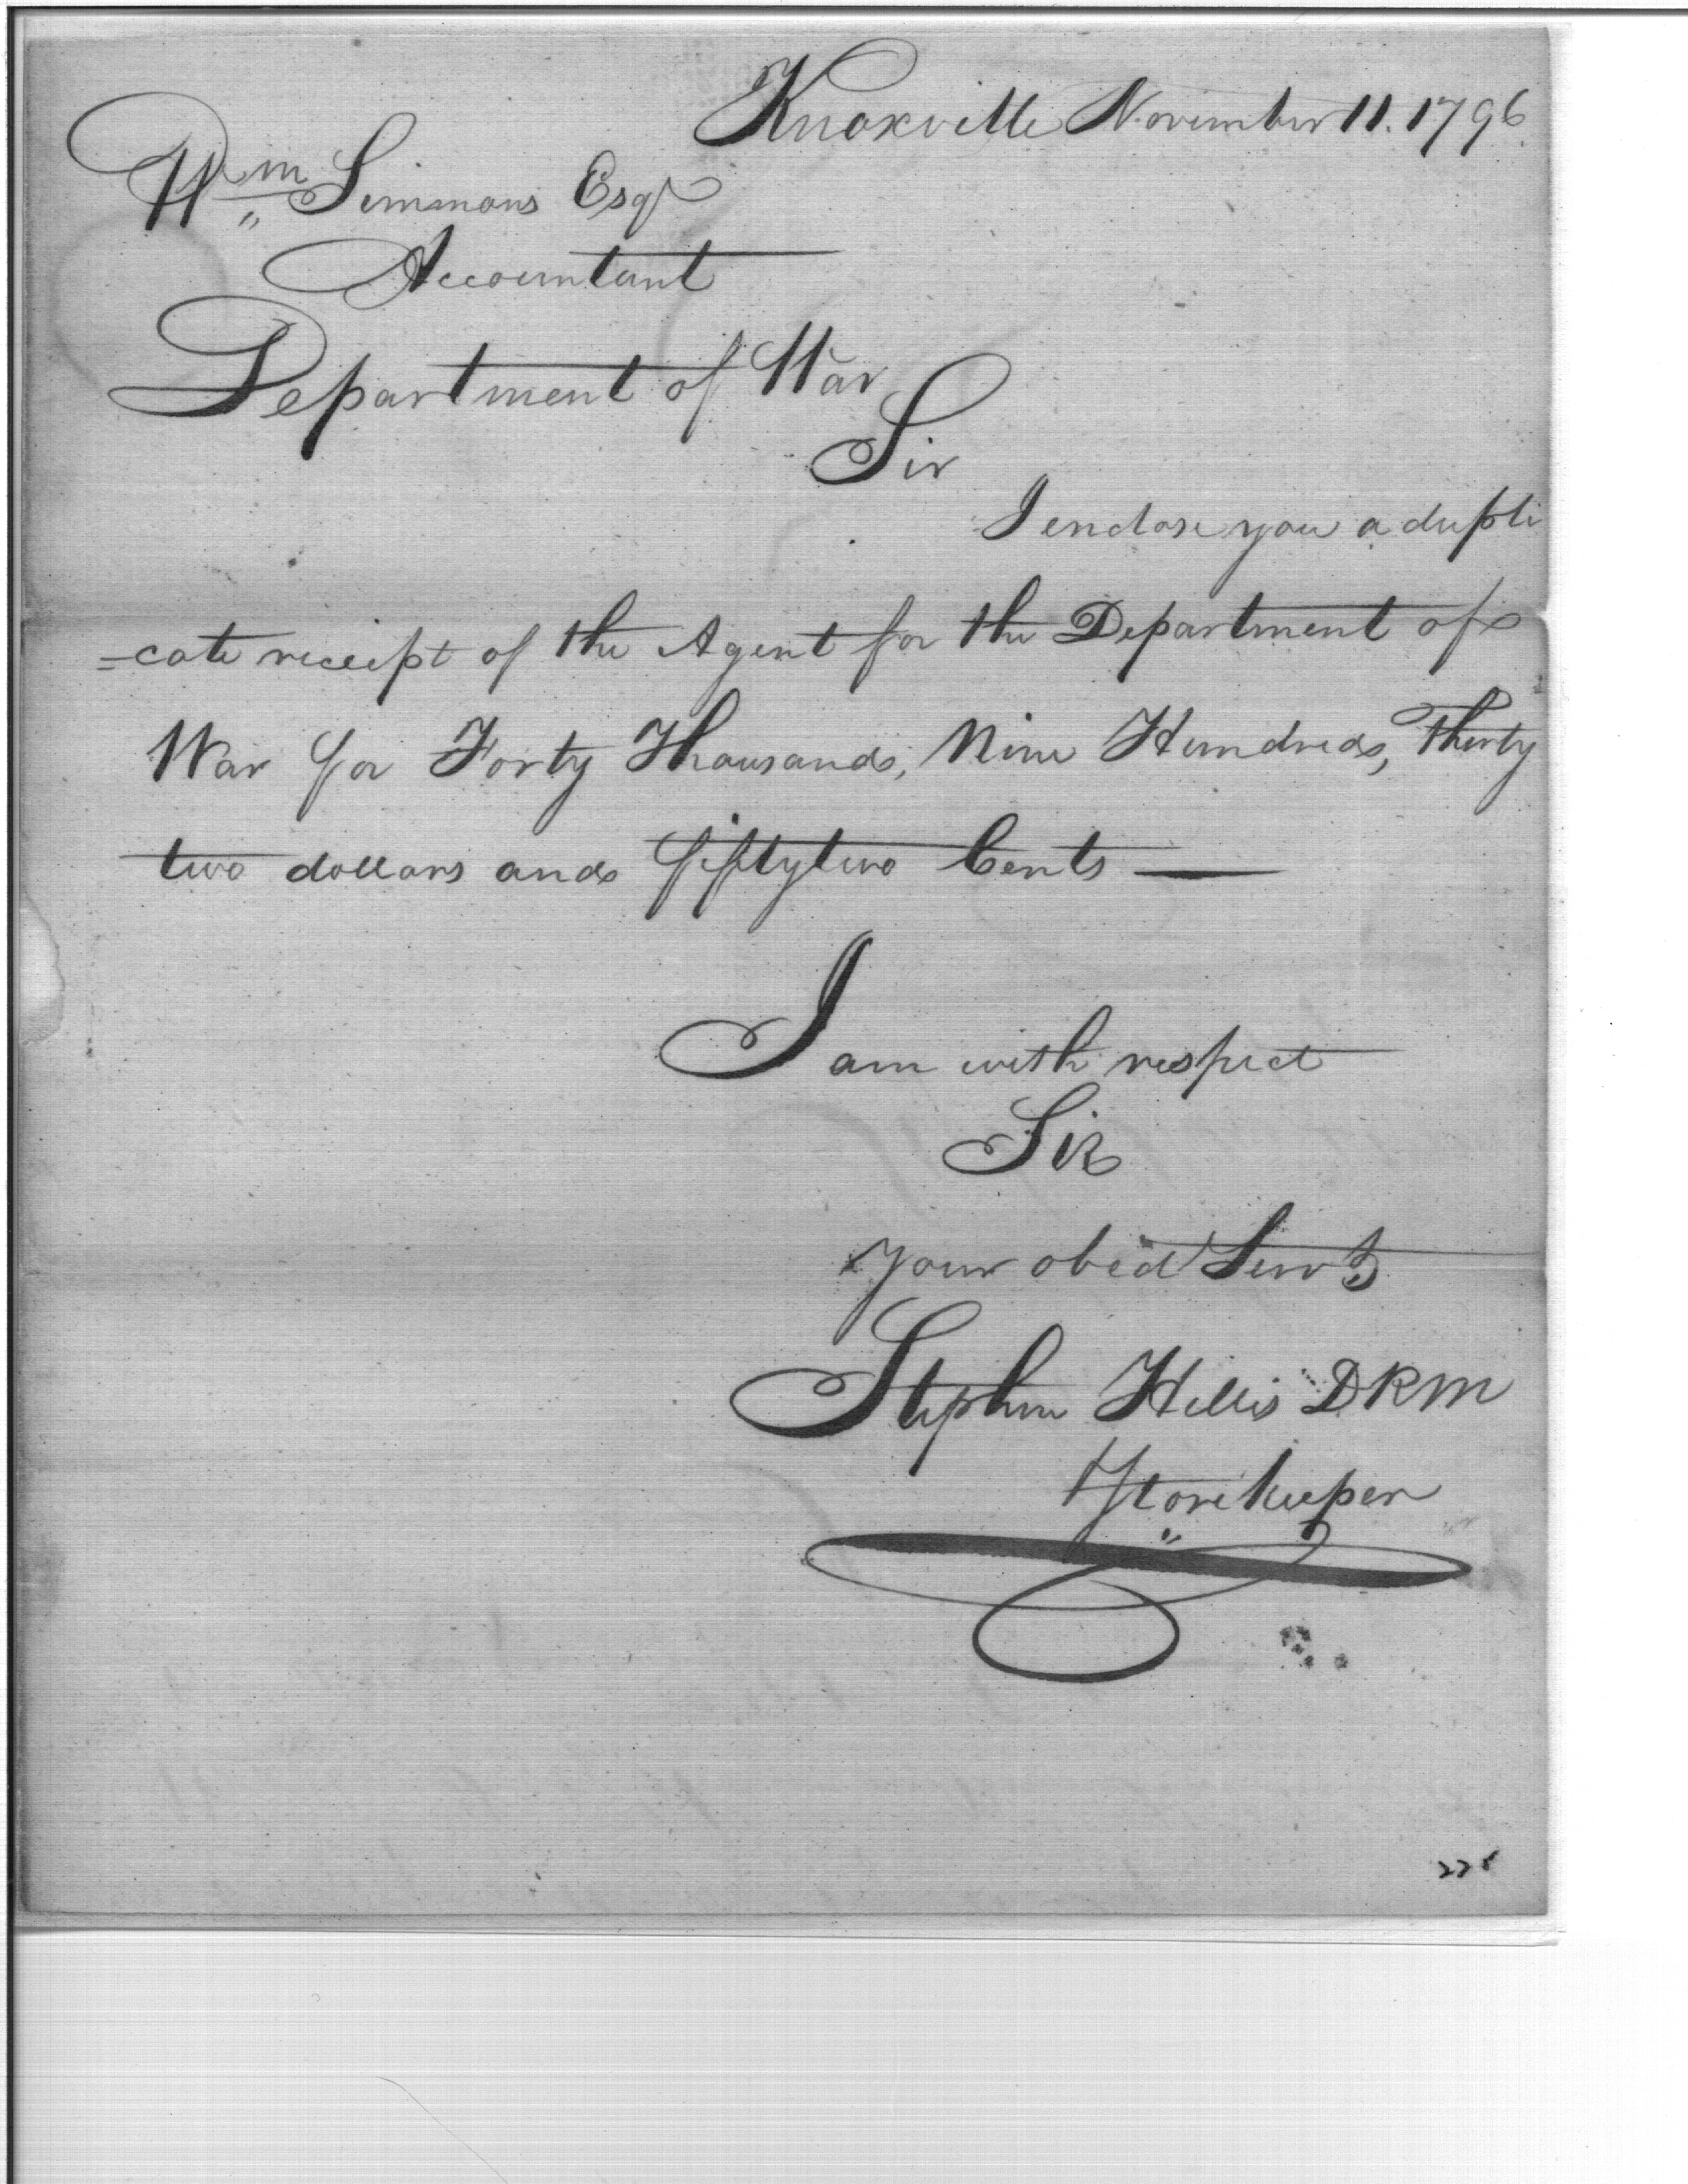 Knoxville November 11. 1796.
Wm Simmons Esqr
Accountant
Department of War
Sir
I enclose you a dupli
=cate receipt of the Agent for the Department of
War for Forty Thousand, Nine Hundred, Thirty
two dollars and fiftytwo Cents —
I am with respect
Sir
your obed Servt
Stephen Hillis DRM
Storekeeper